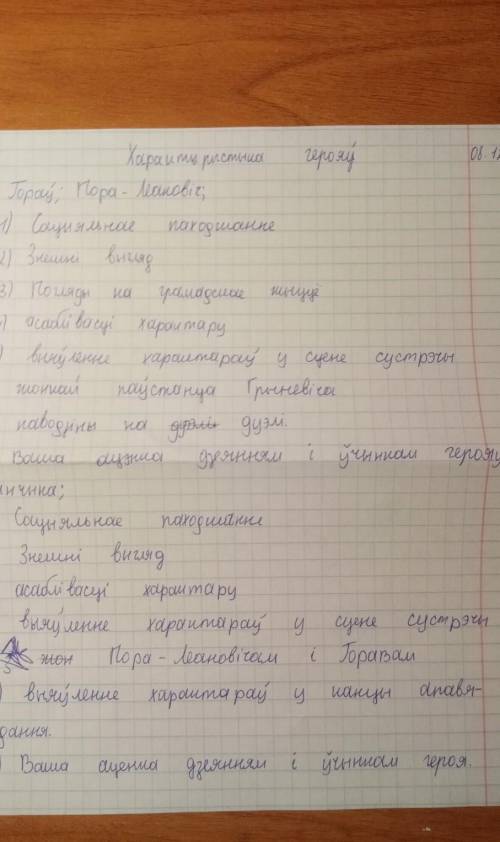 Характарыстыка герояў 06.12
Гораў; Пора-Леановіч;
1) Сацыяльнае паходжанне
2) Знешні выгляд
3) Погляды на грамадскае жыццё
) асаблівасці характару
) выяўленне характараў у сцене сустрэчы
жонкай паўстанца Грыневіча
паводзіны на дуэлі.
Ваша ацэнка дзеянням і ўчынкам герояў
анчыка;
Сацыяльнае паходжанне
Знешні вигляд
асаблівасці характару
выяўленне характараў у сцене сустрэчы
Пора-Леановічам і Горавам
) выяўленне характараў у канцы апавя-
дання.
) Ваша аценка дзеянням і ўчынкам героя.